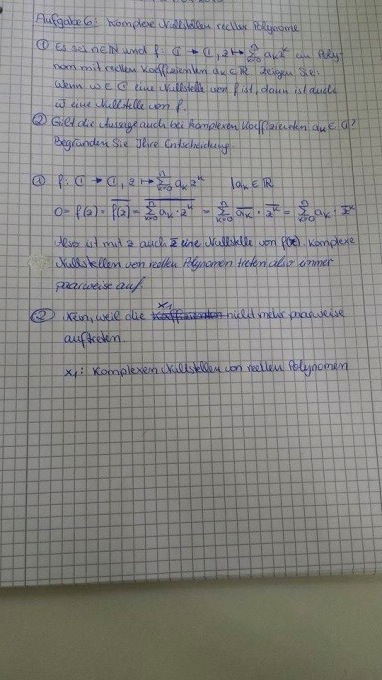 Aufgabe 6: Komplexe Nullstellen reeller Polynome
① Es sei n∈ℕ und f: ℂ → ℂ, z ↦ ∑_{k=0}^{n} a_k z^k ein Poly-
nom mit reellen Koeffizienten a_k ∈ ℝ. Zeigen Sie:
Wenn w ∈ ℂ eine Nullstelle von f ist, dann ist auch
w̅ eine Nullstelle von f.
② Gilt die Aussage auch bei komplexen Koeffizienten a_k ∈ ℂ?
Begründen Sie Ihre Entscheidung.
① f: ℂ → ℂ, z ↦ ∑_{k=0}^{n} a_k z^k | a_k ∈ ℝ
0 = f(z) = \overline{f(z)} = \overline{∑_{k=0}^{n} a_k · z^k} = ∑_{k=0}^{n} \overline{a_k} · \overline{z^k} = ∑_{k=0}^{n} a_k · \overline{z}^k
Also ist mit z auch z̅ eine Nullstelle von f(z). Komplexe
Nullstellen von reellen Polynomen treten also immer
paarweise auf.
x₁
② Nein, weil die Koeffizienten nicht mehr paarweise
auftreten.
x₁: Komplexen Nullstellen von reellen Polynomen